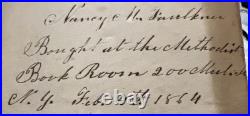 Nancy M. Faulkner
Bought at the Methodist
Book Room 200 Mulb
N. Y. Feb. 1864